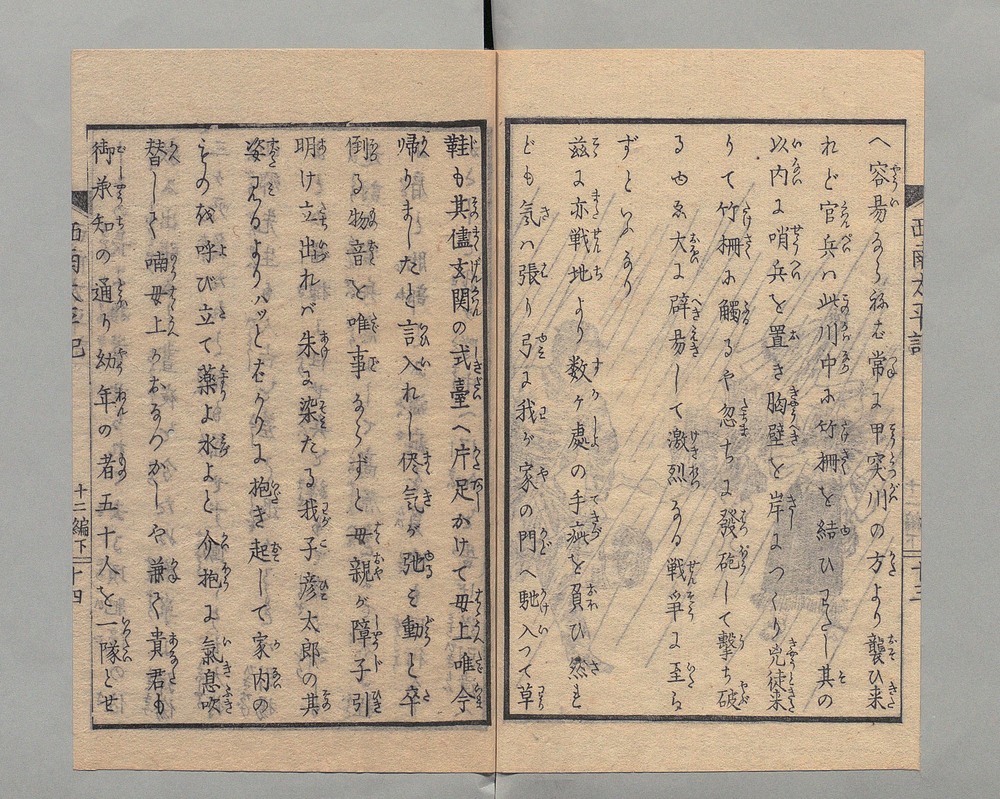 へ容易ならねば常に甲突川の方より襲ひ来
れど官兵ハ此川中に竹柵を結ひわたし其の
以内に哨兵を置き胸壁を岸につくり兇徒来
りて竹柵に觸るや忽ちに發砲して撃ち破
るゆゑ大に辟易して激烈なる戦争に至ら
ずといふなり
茲に亦戦地より数ヶ處の手疵を負ひ然れ
ども気ハ張り弓に我が家の門へ馳入つて草
鞋も其儘玄関の式臺へ片足かけて母上唯今
帰りましたと言入れし終気が弛み動と卒
倒る物音を唯事ならずと母親が障子引
明け立出れバ朱に染たる我子彦太郎の其
姿見るよりハッとばかりに抱き起して家内の
ものを呼び立て薬よ水よと介抱に氣息吹
替して喃母上おなつかしや兼て貴君も
御承知の通り幼年の者五十人を一隊とせ
西南太平記
十二編下
十三
西南太平記
十二編下
十四